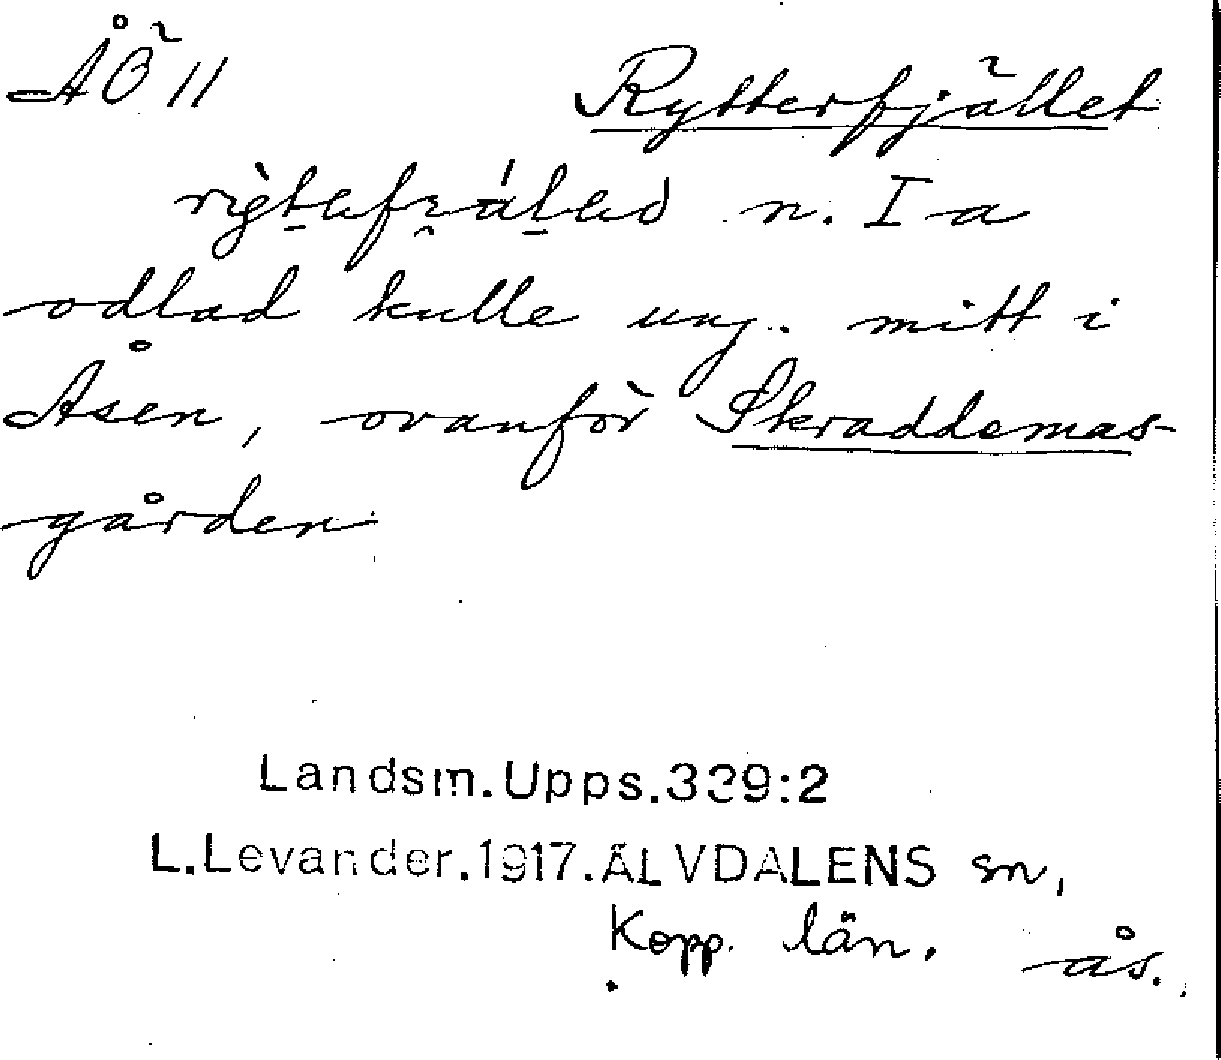 ÅÖ 11 Rytterfjället
n. I a
odlad kulle ung. mitt i
Åsen, ovanför Skraddemas-
gården
Landsm.Upps.339:2
L.Levander.1917.ÄLVDALENS sn,
Kopp. län. ås.